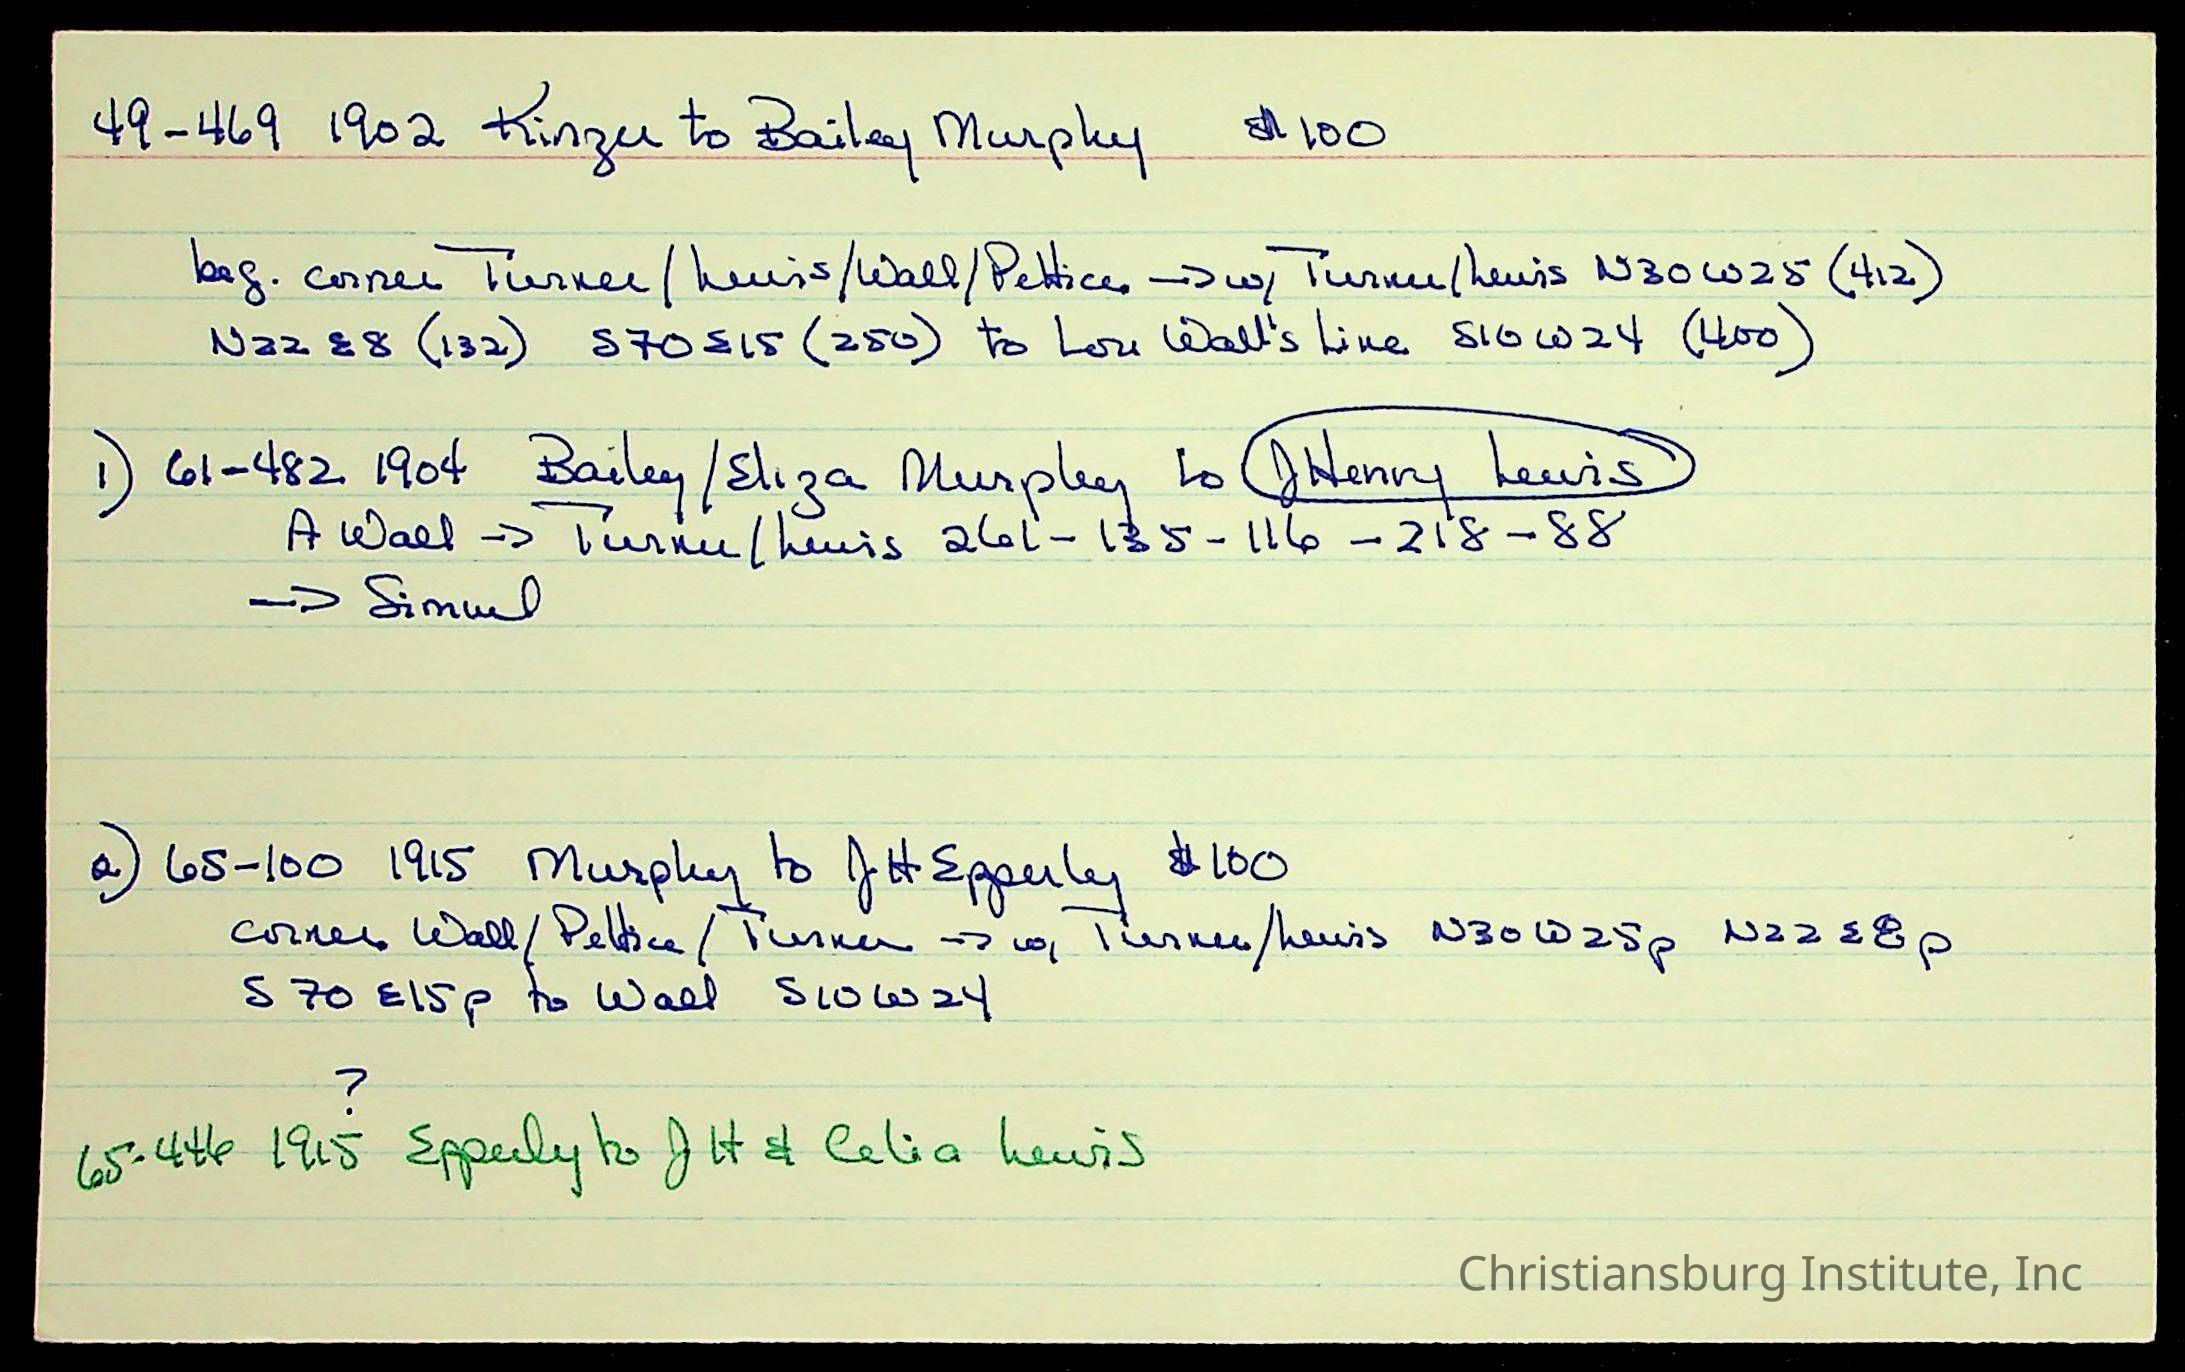 49-469 1902 Kinzer to Bailey Murphy $100
beg. corner Turner/Lewis/Wall/Pettice → w/ Turner/Lewis N30W25 (412)
N22E8 (132) S70E15 (250) to Lou Wall's line S10W24 (400)
1) 61-482 1904 Bailey/Eliza Murphy to J Henry Lewis
A Wall → Turner/Lewis 261-135-116-218-88
→ Simuel
2) 65-100 1915 Murphy to JH Epperly $100
corner Wall/Pettice/Turner → w/ Turner/Lewis N30W25p N22E8p
S70E15p to Wall S10W24
?
65-446 1915 Epperly to JH & Celia Lewis
Christiansburg Institute, Inc